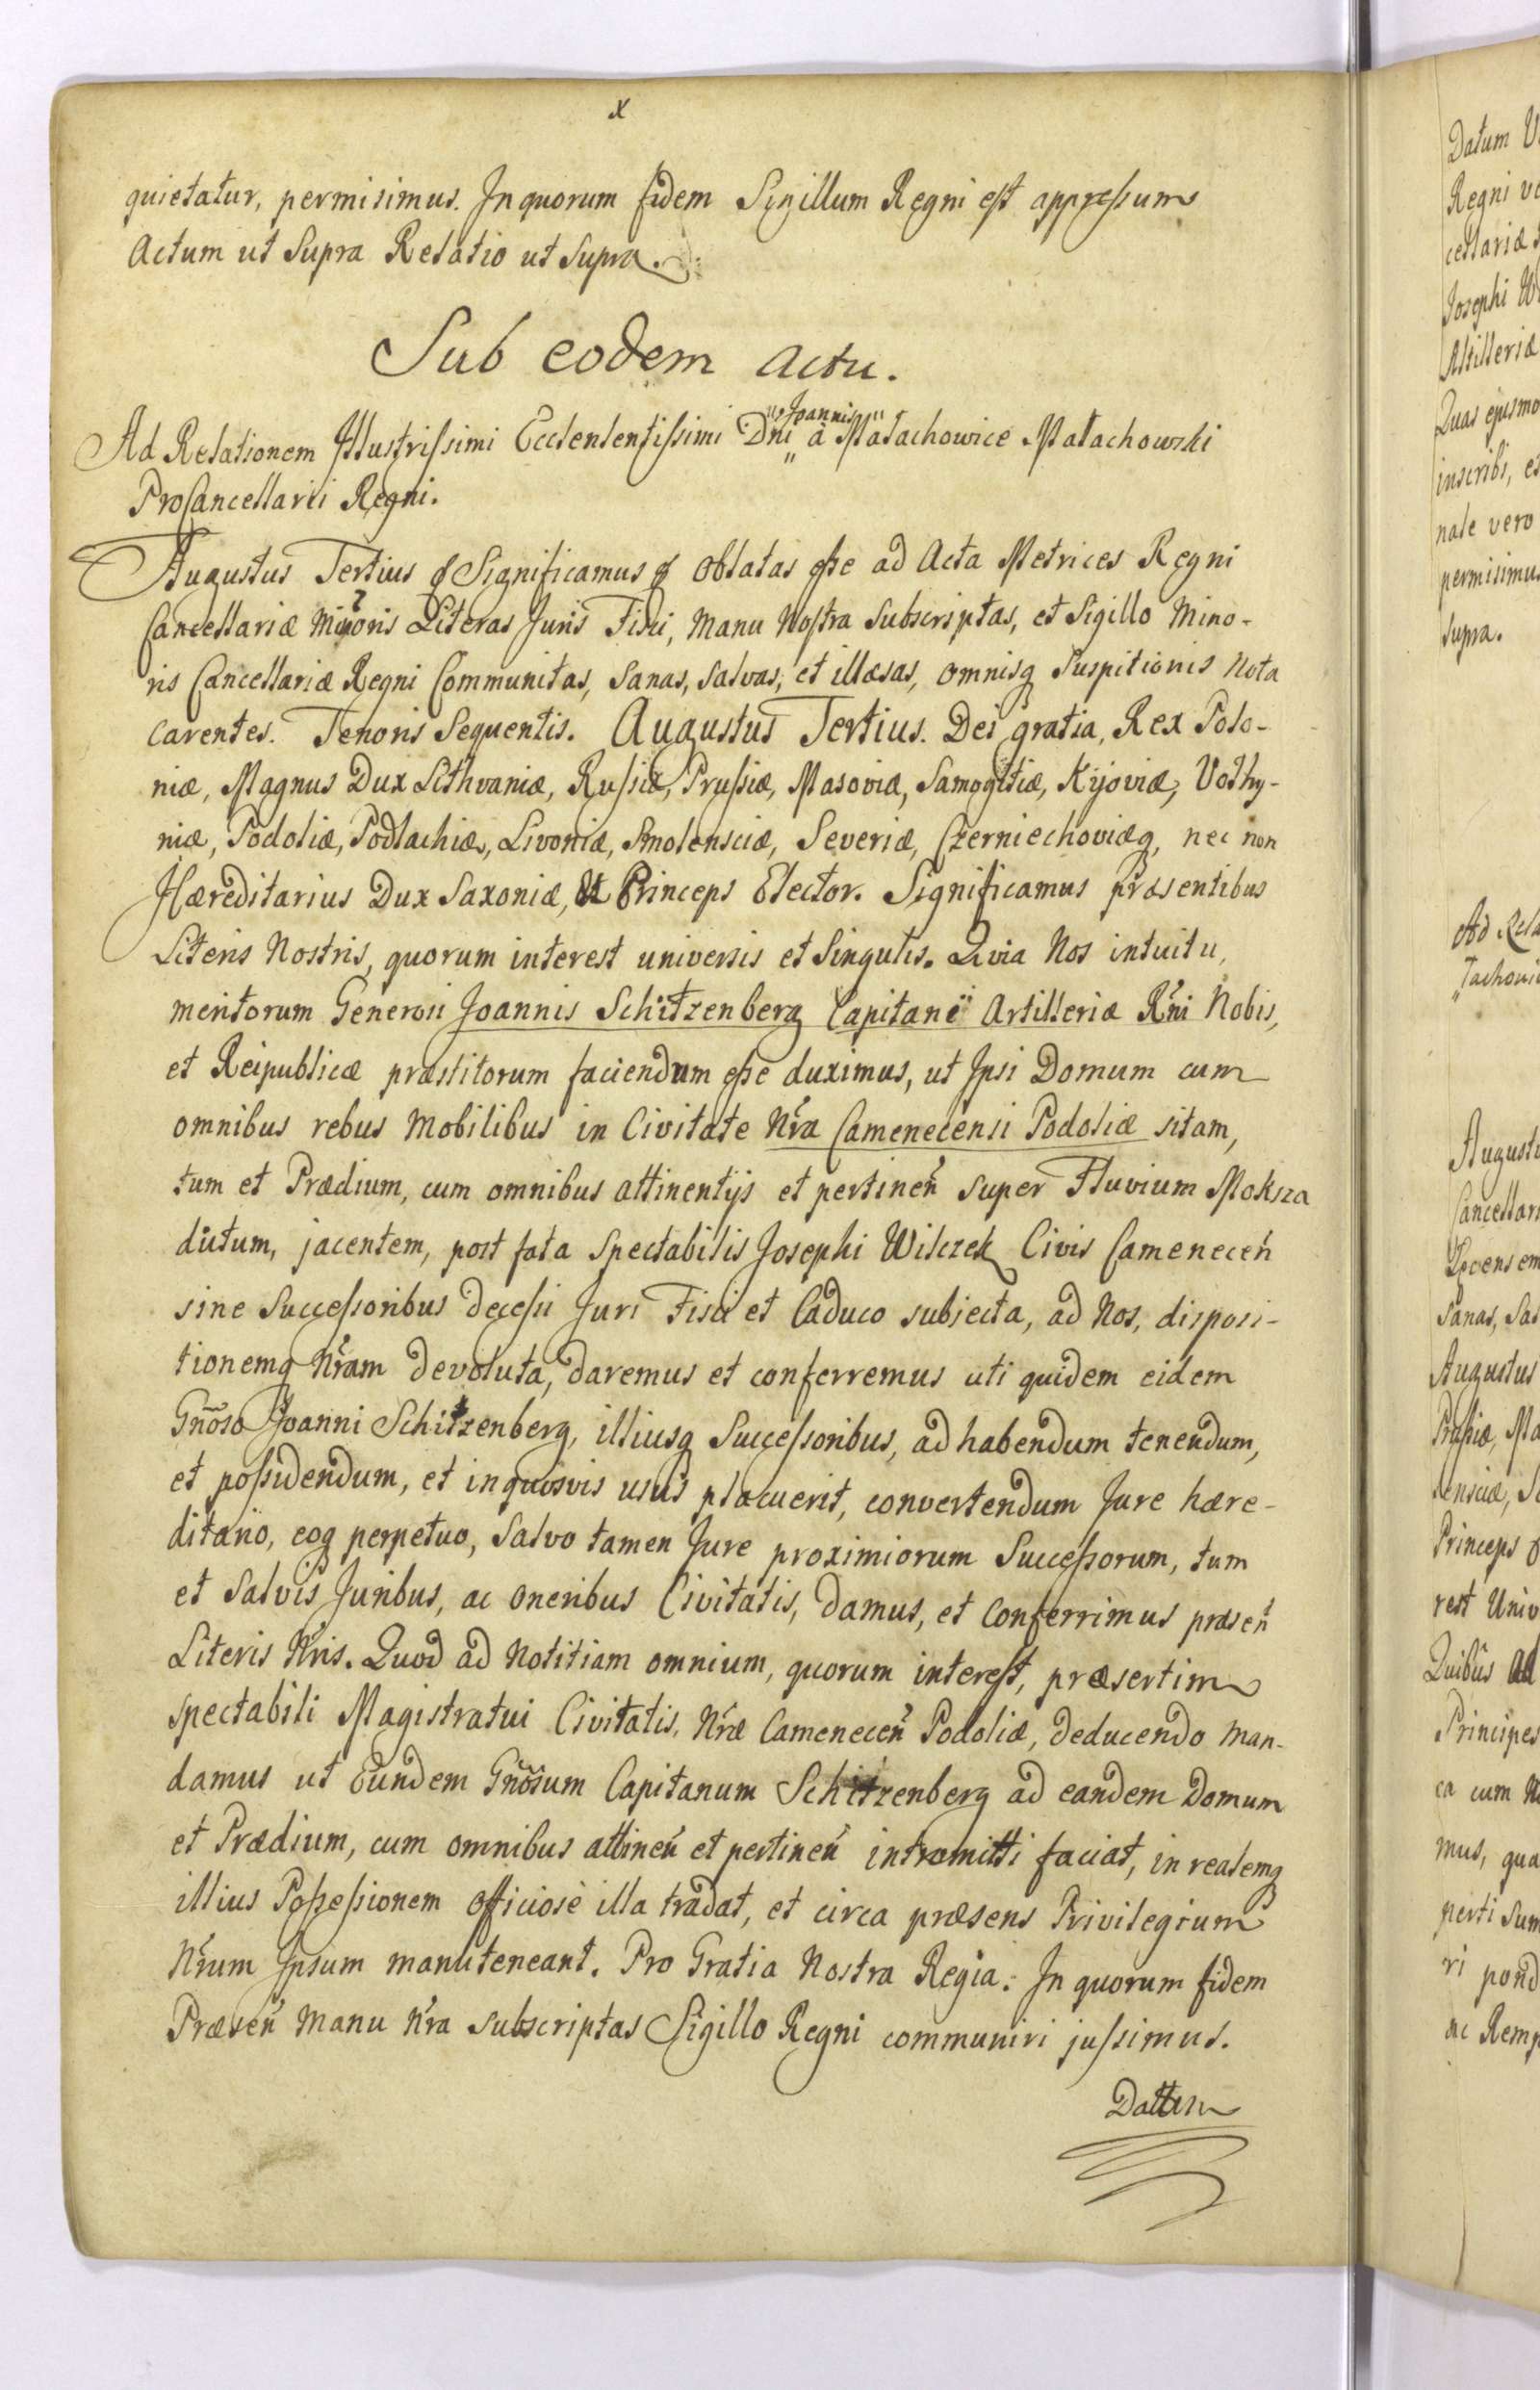 x
quietatur, permisimus. In quorum fidem Sigillum Regni est appressum
Actum ut Supra Relatio ut Supra.
Sub eodem actu.
Ad Relationem Illustrissimi Eccelentissimi Dni „Joannis" à Małachowice Małachowski
ProCancellarii Regni.
Augustus Tertius Significamus oblatas esse ad Acta Metrices Regni
Cancellariæ Minoris Literas Juris Fisci, manu Nostra Subscriptas, et Sigillo Mino-
ris Cancellariæ Regni Communitas, Sanas, Salvas, et illæsas, omnisq Suspitionis Nota
carentes. Tenoris Sequentis. Augustus Tertius. Dei gratia, Rex Polo-
niæ, Magnus Dux Lithvaniæ, Russiæ, Prussiæ, Masoviæ, Samogitiæ, Kijoviæ, Volhy-
niæ, Podoliæ, Podlachiæ, Livoniæ, Smolensciæ, Severiæ, Czerniechoviæq, nec non
Hæreditarius Dux Saxoniæ, Et Princeps Elector. Significamus præsentibus
Literis Nostris, quorum interest universis et Singulis. Quia Nos intuitu,
meritorum Generosi Joannis Schitzenberg Capitanei Artilleriæ Rni Nobis,
et Reipublicæ præstitorum faciendum esse duximus, ut Ipsi Domum cum
omnibus rebus Mobilibus in Civitate Nra Camenecensi Podoliæ sitam,
tum et Prædium, cum omnibus attinentijs et pertinen super Fluvium Moksza
dictum, jacentem, post fata Spectabilis Josephi Wilczek Civis Camenecen
sine Successoribus decessi Juri Fisci et Caduco subjecta, ad Nos, disposi-
tionemq Nram devoluta, daremus et conferremus uti quidem eidem
Gnoso Joanni Schitzenberg, illiusq Successoribus, ad habendum tenendum,
et possidendum, et in quosvis usus placuerit, convertendum Jure hære-
ditario, eoq perpetuo, Salvo tamen Jure proximiorum Successorum, tum
et Salvis Juribus, ac oneribus Civitatis, damus, et Conferrimus præsen
Literis Nris. Quod ad Notitiam omnium, quorum interest, præsertim
spectabili Magistratui Civitatis, Nræ Camenecen Podoliæ, deducendo man-
damus ut Eundem Gnosum Capitanum Schitzenberg ad eandem Domum
et Prædium, cum omnibus attinen et pertinen intromitti faciat, in realemq
illius Possessionem officiosè illa tradat, et circa præsens Privilegium
Nrum Ipsum manuteneant. Pro Gratia Nostra Regia. In quorum fidem
Præsen Manu Nra Subscriptas Sigillo Regni communiri jussimus.
Dattum
Datum
Regni
cellariæ
Josephi
Altilleriæ
Quas ejusmo
inscribi, es
nale vero
permisimus
supra.
Ad Rela
„łachowi
Augustu
Cancellari
Sanas, Sal
Augustus
Prussiæ, Ma
lensciæ, Se
Princeps
rest Univ
Quibus ad
Principes
ca cum
mus, qua
perti sum
ri pond
ac Remp